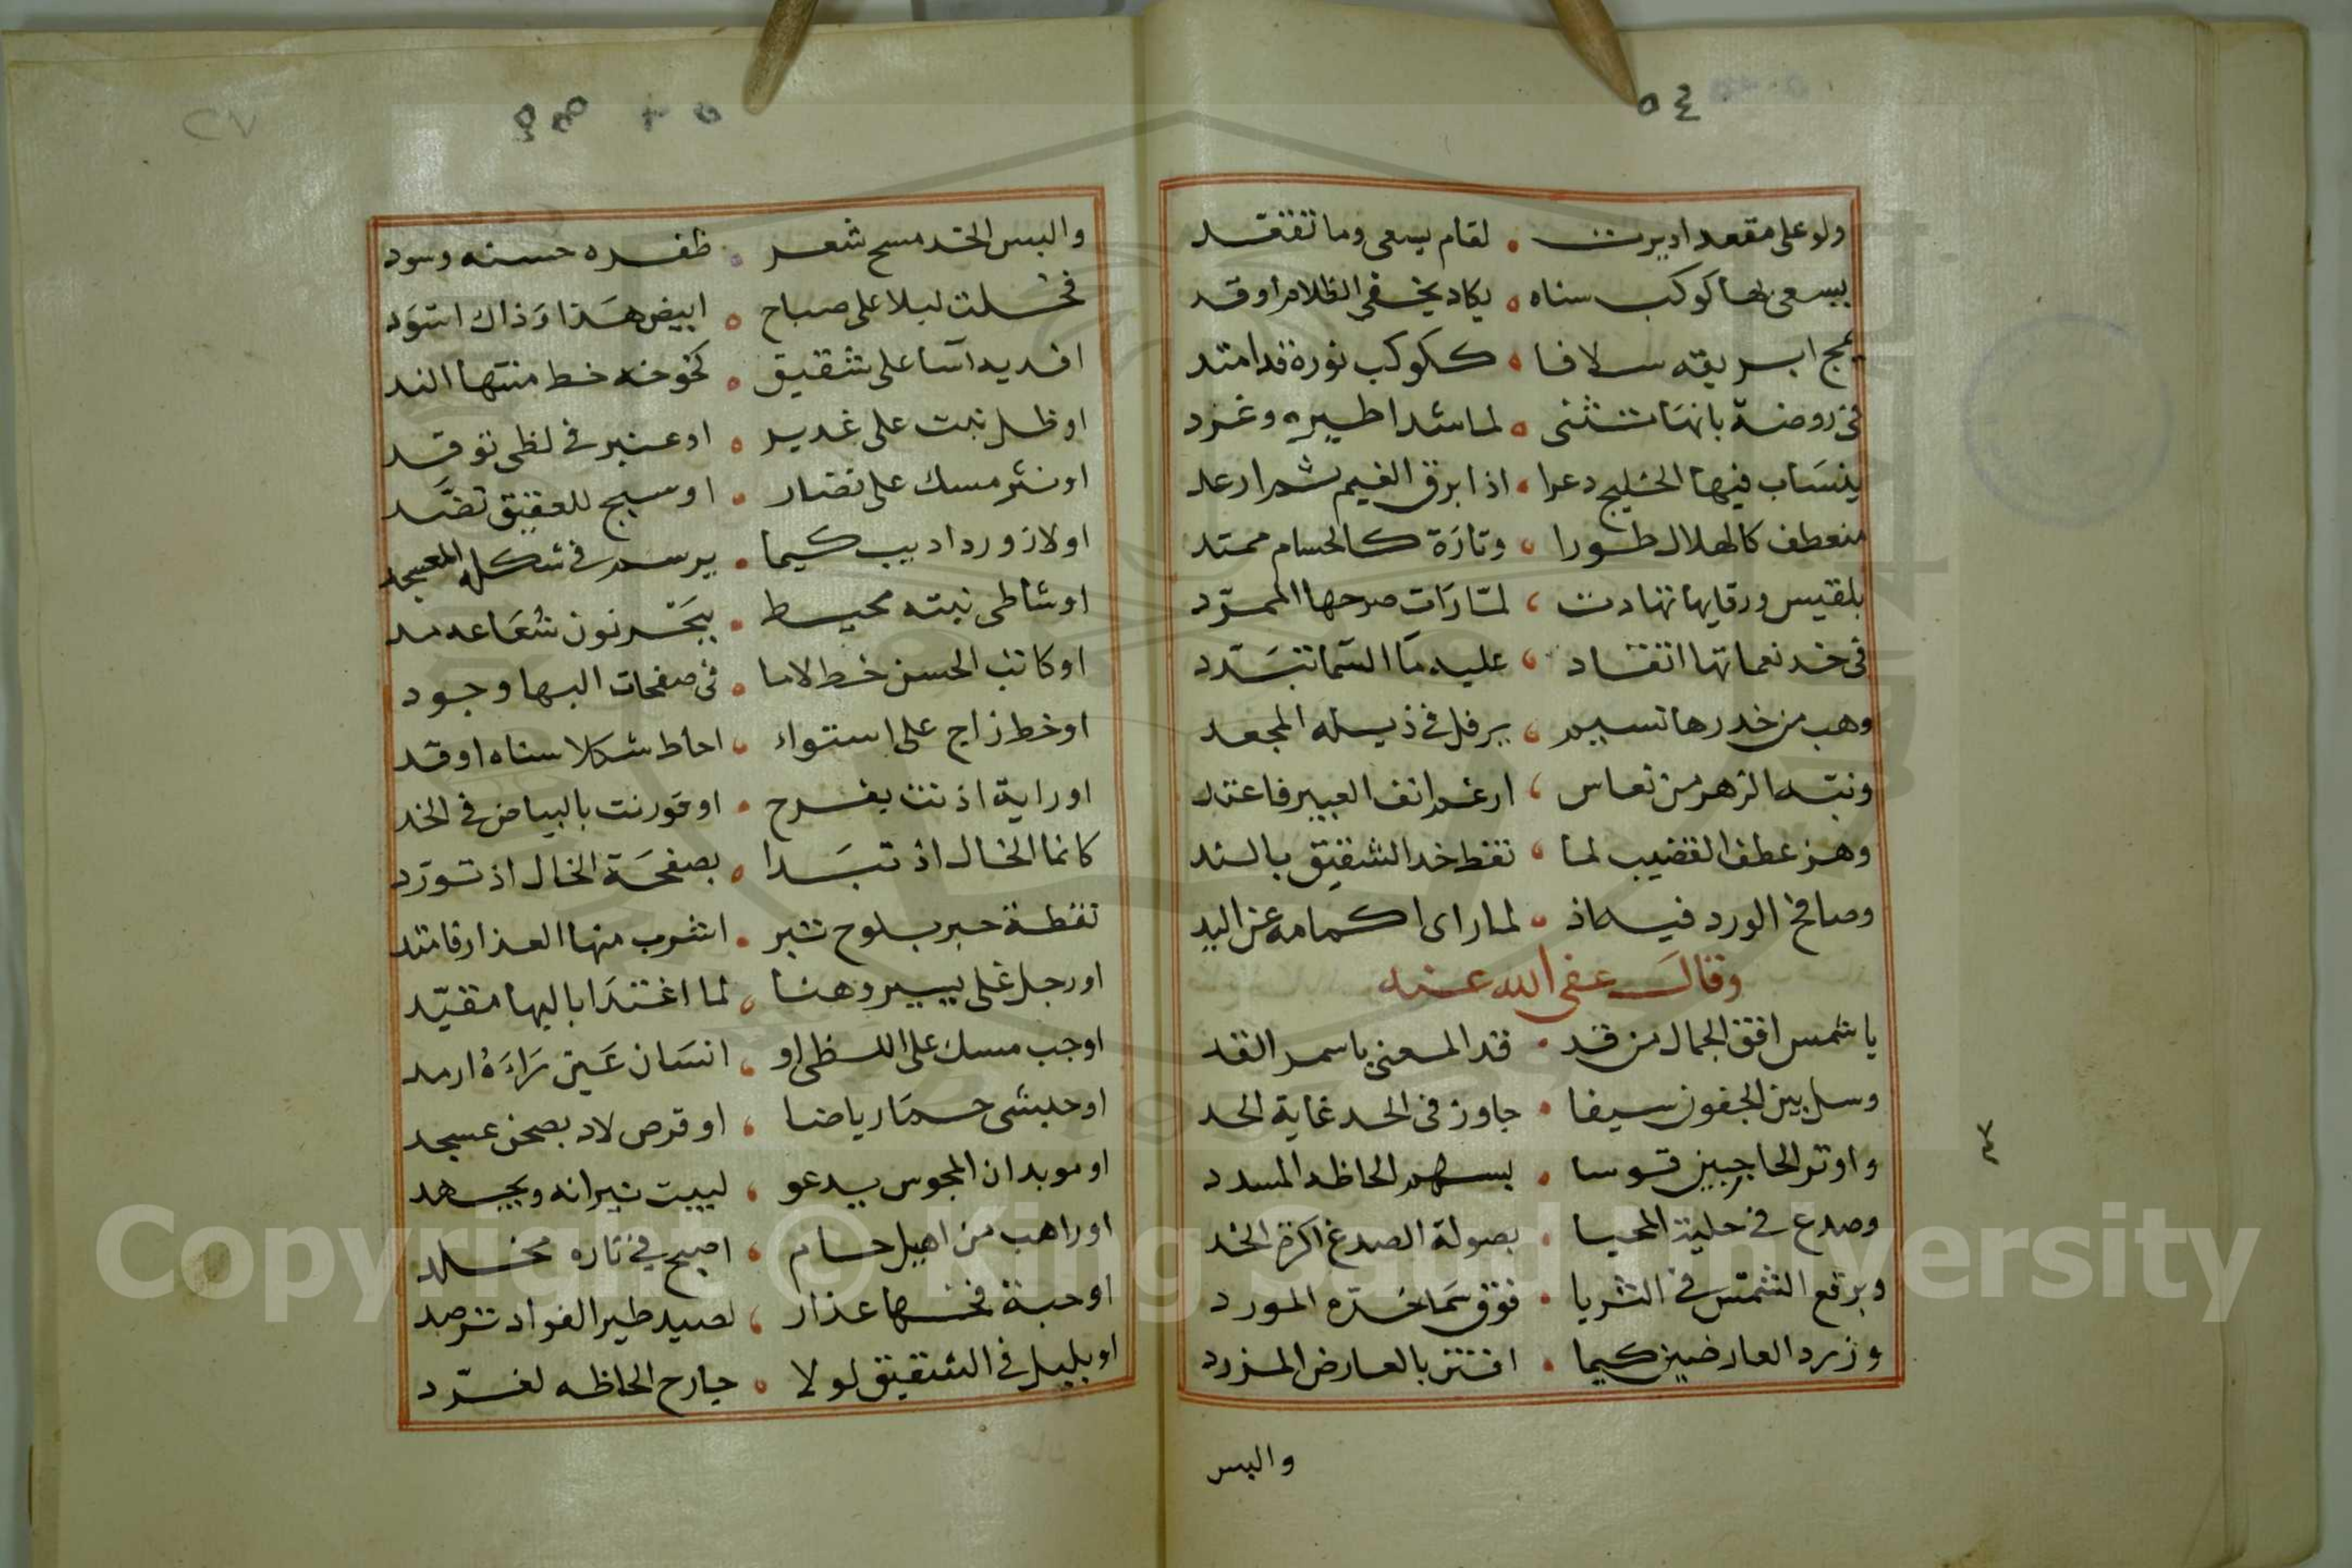 ٥٤
ولو على مقعد اديرت لقام يسعى وما تفقد
يسعى بها كوكب سناه يكاد يخفى الظلام اوقد
يمج ابريقه سلافا ككوكب نوره قد امتد
فى روضة بانها تثنى لما شدا طيره وغرد
ينساب فيها الخليج دعرا اذا ابرق الغيم ثم ارعد
منعطف كالهلال طورا وتارة كالحسام ممتد
بلقيس ورقايها تهادت لما رات صرحها الممرد
فى خد نعماتها اتقاد عليه ما السما تبدد
وهب من خدرها نسيم يرفل فى ذيله المجعد
ونبه الزهر من نعاس ارغم انف العبير فاعتد
وهز عطف القضيب لما نقط خد الشقيق بالند
وصافح الورد فيه اذ لما راى اكمامه عن اليد
وقال عفى الله عنه
يا شمس افق الجمال من قد قد المعنى باسمر القد
وسل بين الجفون سيفا جاوز فى الحد غاية الحد
واوتر الحاجبين قوسا بسهم الحاظه المسدد
وصدع فى حلية المحيا بصولة الصدغ اكرة الخد
وبرقع الشمس فى الثريا فوق سما خده المورد
وزرد العارضين كيما افتتن بالعارض المزرد
والبس
٢٧
والبس الخد مسح شعر ظفره حسنه وسود
فخلت ليلا على صباح ابيض هذا وذاك اسود
افديه اسا على شقيق كنحو خد خط منتها الند
او ظل نبت على غدير او عنبر فى لظى توقد
او نثر مسك على نضار او سبج للعقيق نضد
او لازورد اديب كيما يرسم فى شكله المعسجد
او شاطى نبته محيط ببحر نون شعاعه مد
او كاتب الحسن خط لاما فى صفحات البها وجود
او خط زاج على استواء احاط شكلا سناه اوقد
او راية اذنت بفرح او قورنت بالبياض فى الخد
كانما الخال اذ تبدا بصفحة الخال اذ تورد
نقطة حبر بلوح تبر اشرب منها العذار فامتد
او رجل غلى يسير وهنا لما اغتدا باليها مقيد
او جب مسك على اللظى او انسان عين راءه ارمد
او حبشى حمار ياضا او قرص لاد بصحن عسجد
او موبدان المجوس يدعو لبيت نيرانه ويجهد
او راهب من اهيل حام اصبح فى ناره مخلد
او حبة فخها عذار لصيد طير الفواد ترصد
او بلبل فى الشقيق لولا جارح الحاظه لغرد
Copyright © King Saud University